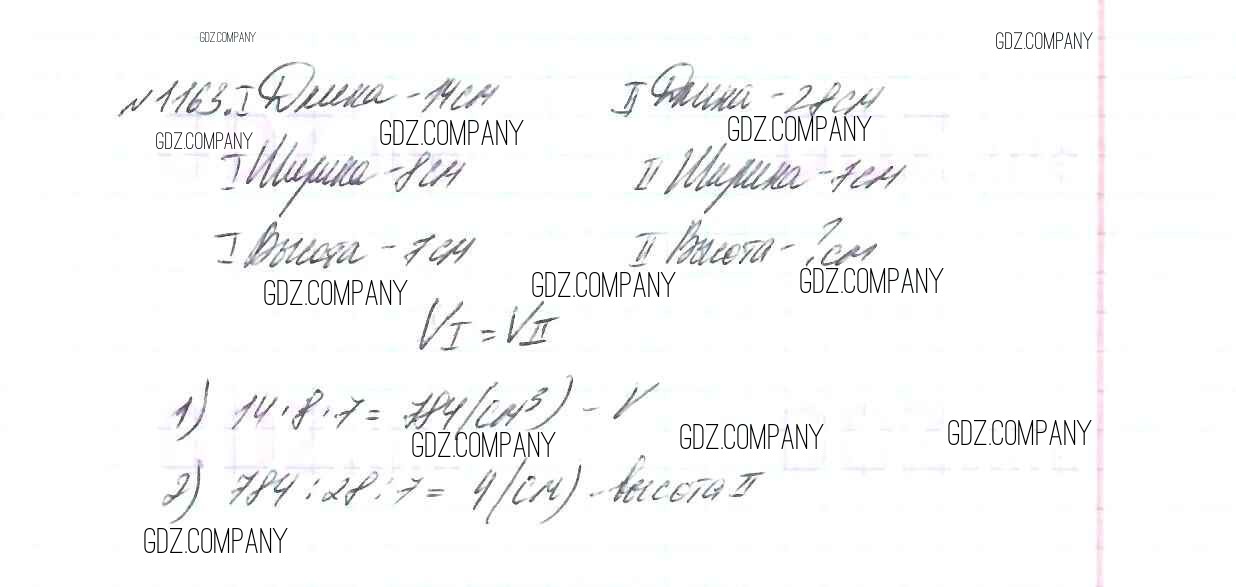 GDZ.COMPANY GDZ.COMPANY
№1163. I Длина - 14см II Длина - 28см
GDZ.COMPANY GDZ.COMPANY GDZ.COMPANY
I Ширина - 8см II Ширина - 7см
I Высота - 7см II Высота - ?см
GDZ.COMPANY GDZ.COMPANY GDZ.COMPANY
VI = VII
1) 14·8·7 = 784(см³) - V
GDZ.COMPANY GDZ.COMPANY GDZ.COMPANY
2) 784:28:7 = 4(см) - высота II
GDZ.COMPANY